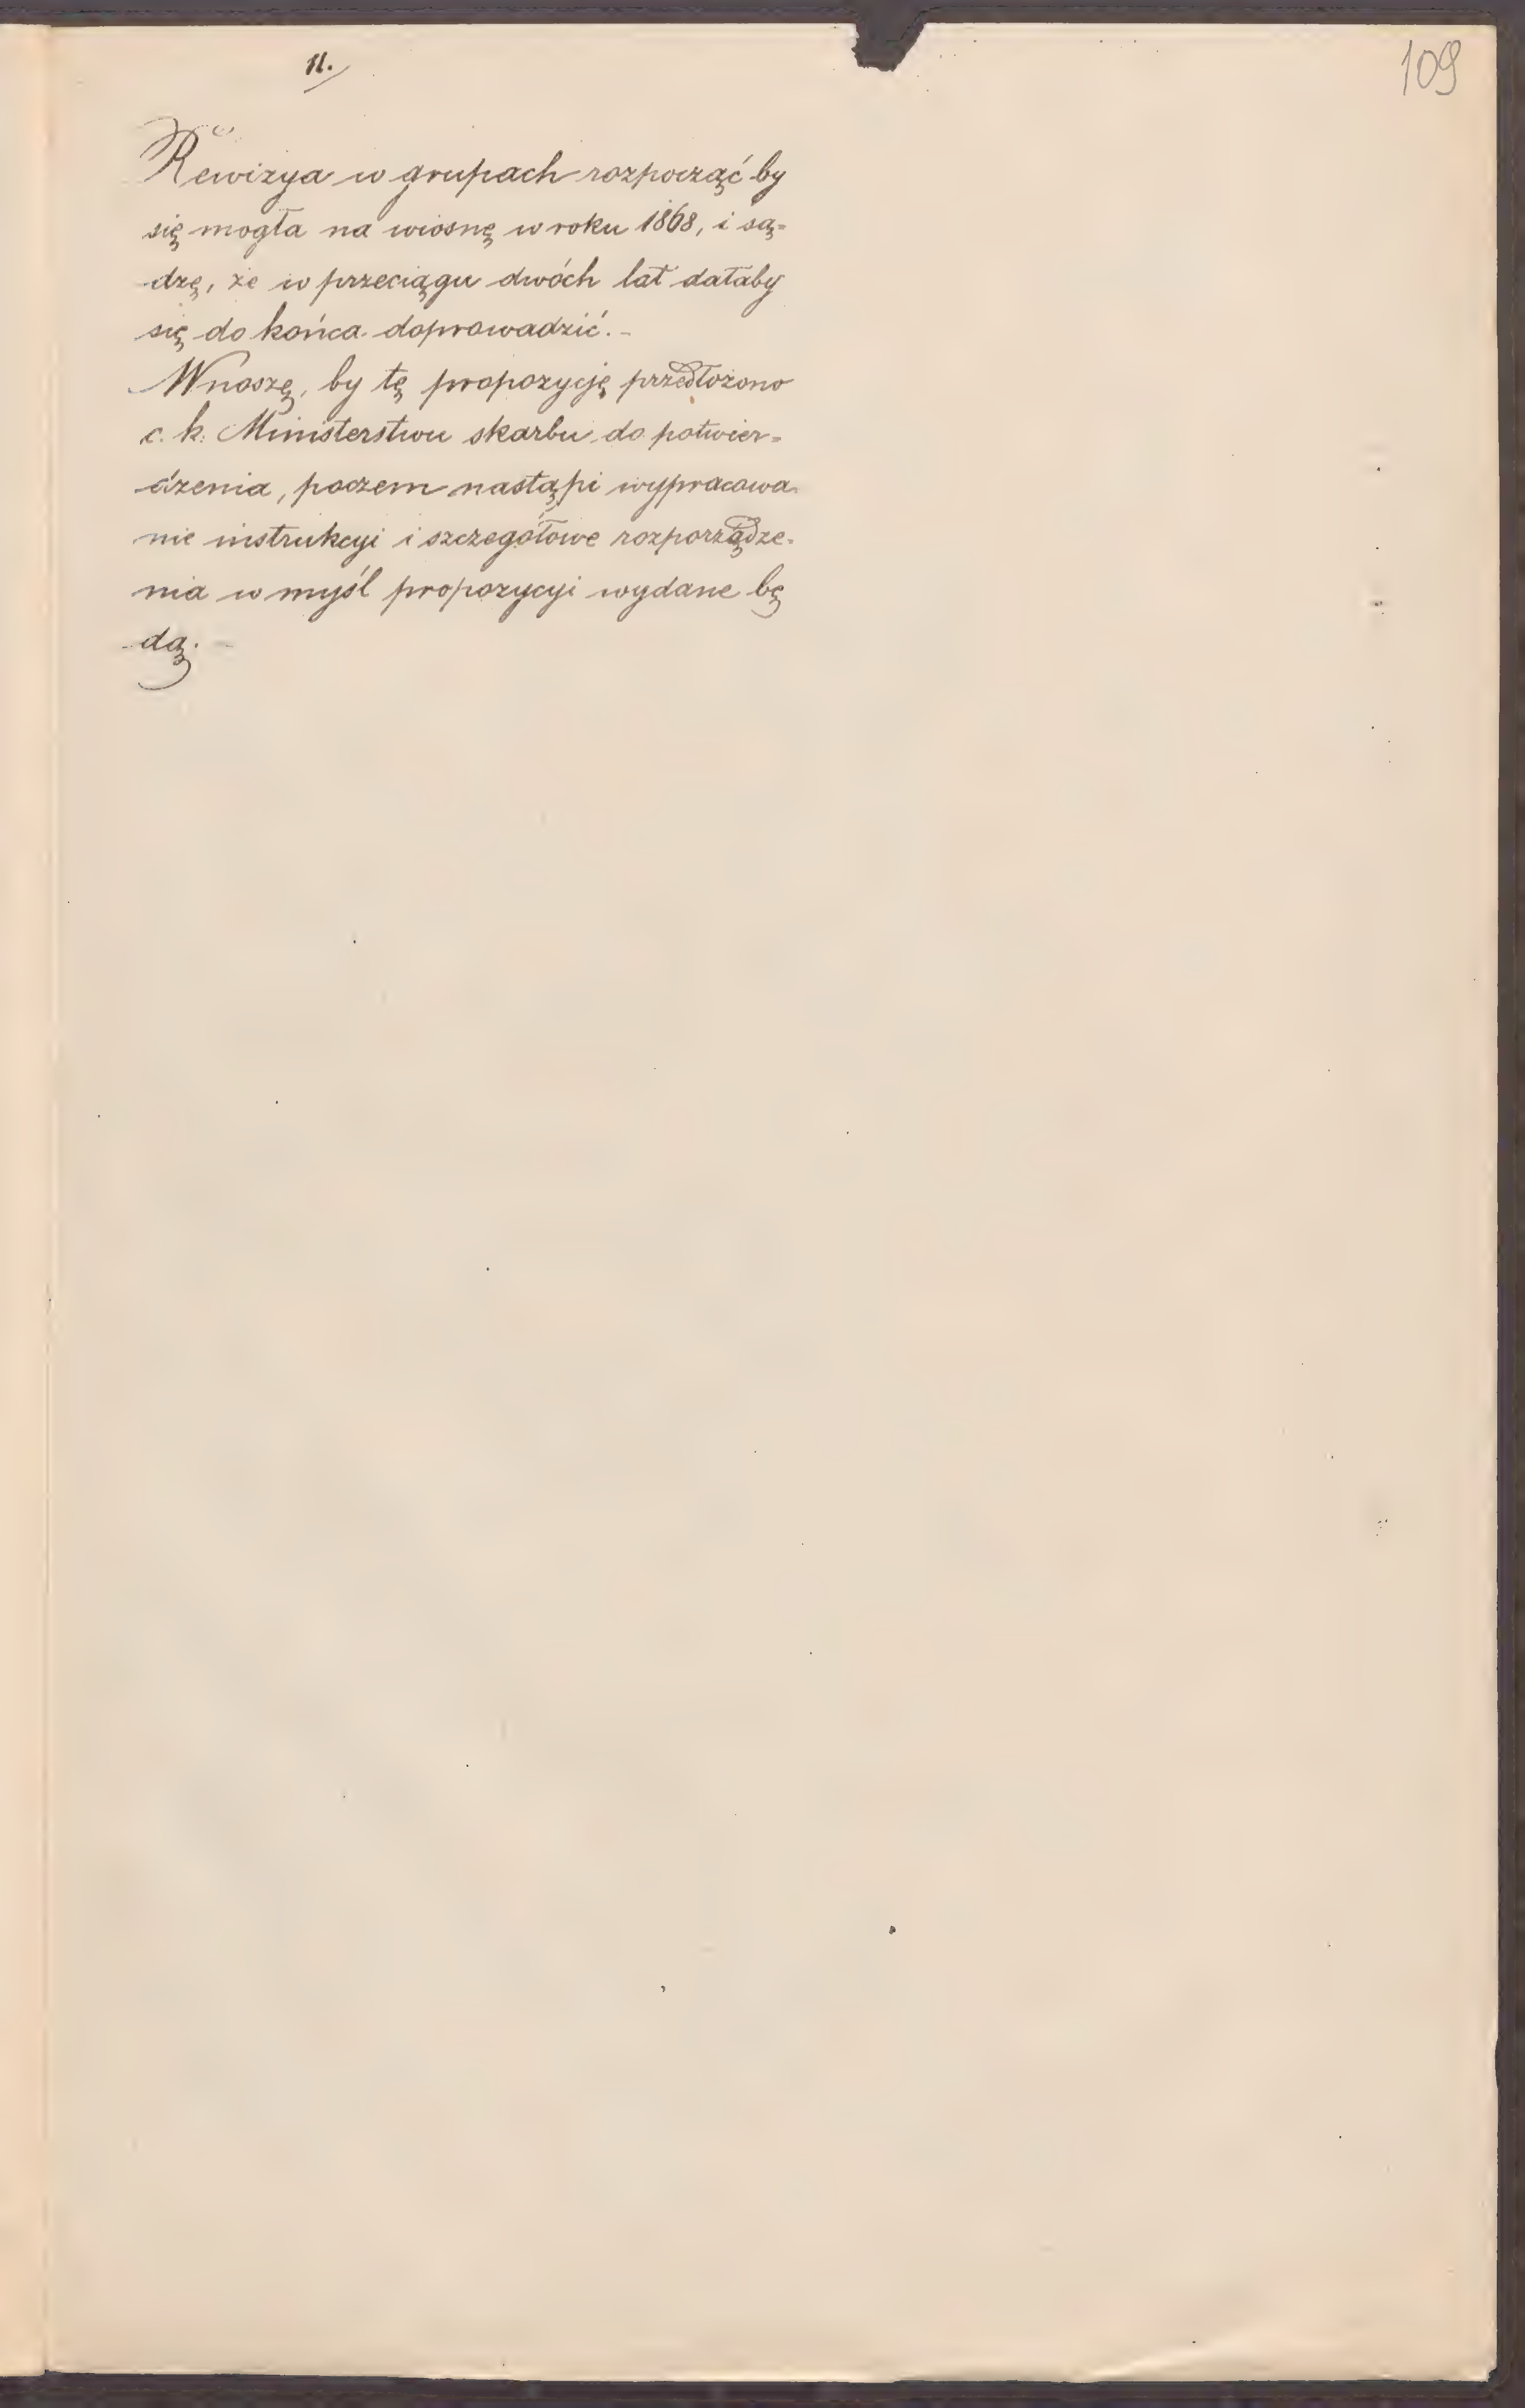 11.
109
Rewizya w grupach rozpocząć by
się mogła na wiosnę w roku 1868, i są=
dzę, że w przeciągu dwóch lat dałaby
się do końca doprowadzić. -
Wnoszę, by tę propozycję przedłożono
c. k. Ministerstwu skarbu do potwier=
dzenia, poczem nastąpi wypracowa-
nie instrukcyi i szczegółowe rozporządze-
nia w myśl propozycyi wydane bę
dą. -